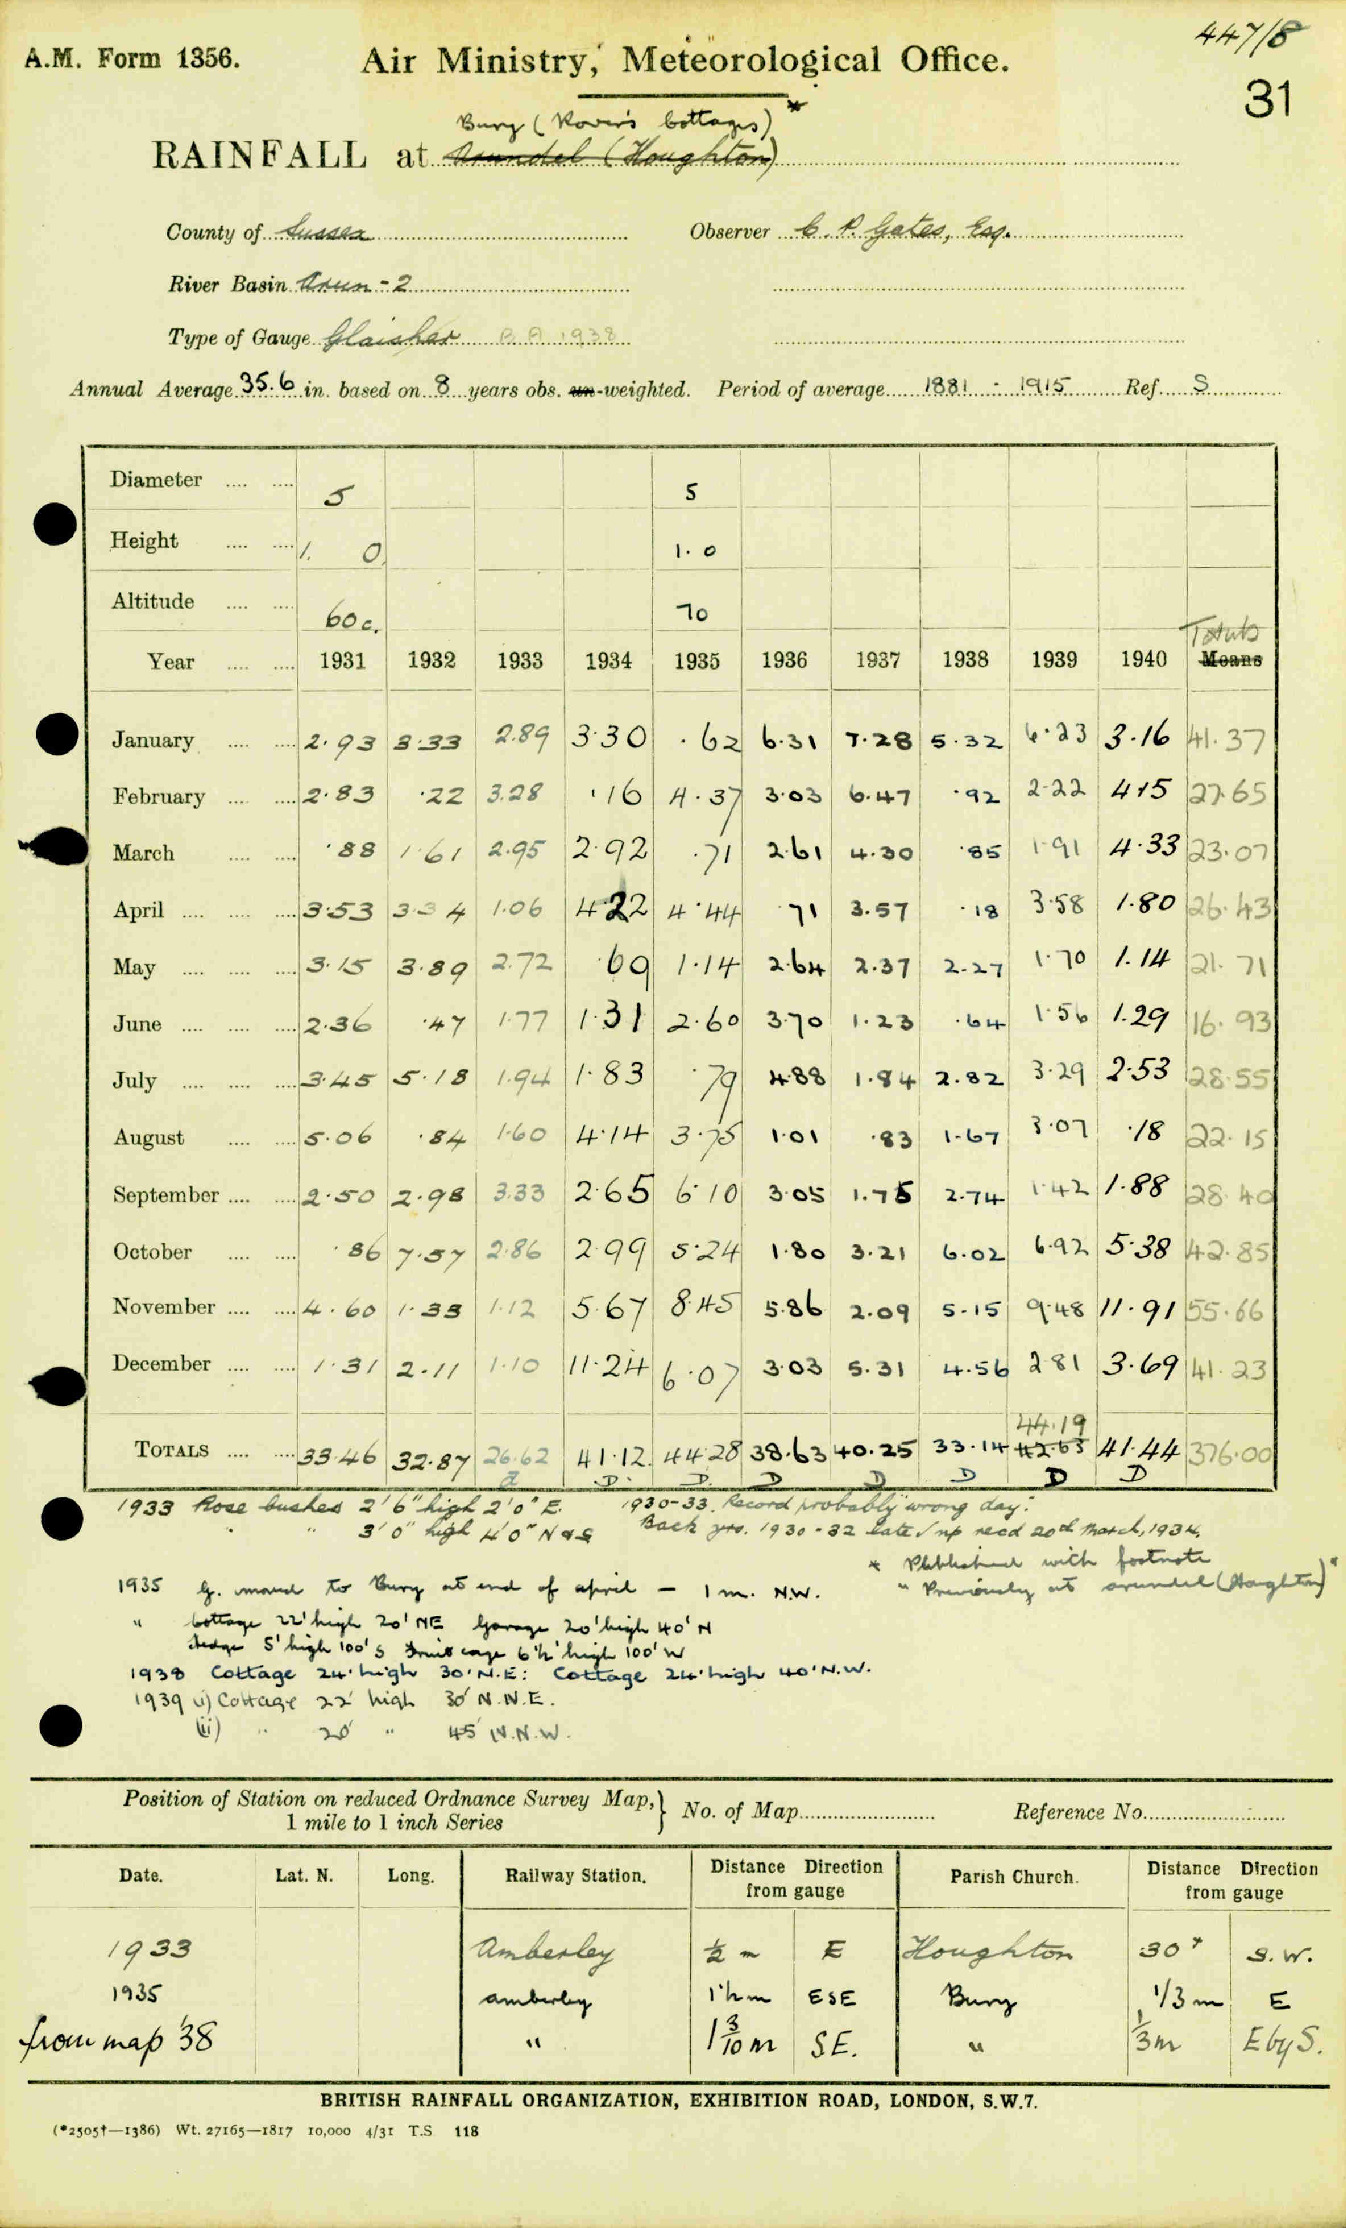 447/8
A.M. Form 1356. Air Ministry, Meteorological Office.
31
Bury (Rover's Cottages) *
RAINFALL at Arundel (Houghton)
County of Sussex Observer C. P. Gates, Esq.
River Basin Arun - 2
Type of Gauge Glaisher B.A 1938
Annual Average 35.6 in. based on 8 years obs. un-weighted. Period of average 1881 - 1915 Ref. S
Diameter 5 5
Height 1. 0 1. 0
Altitude 60 c. 70
Totals
Year 1931 1932 1933 1934 1935 1936 1937 1938 1939 1940 Means
January 2.93 3.33 2.89 3.30 .62 6.31 7.28 5.32 6.23 3.16 41.37
February 2.83 .22 3.28 .16 4.37 3.03 6.47 .92 2.22 4.15 27.65
March .88 1.61 2.95 2.92 .71 2.61 4.30 .85 1.91 4.33 23.07
April 3.53 3.34 1.06 4.22 4.44 .71 3.57 .18 3.58 1.80 26.43
May 3.15 3.89 2.72 .69 1.14 2.64 2.37 2.27 1.70 1.14 21.71
June 2.36 .47 1.77 1.31 2.60 3.70 1.23 .64 1.56 1.29 16.93
July 3.45 5.18 1.94 1.83 .79 4.88 1.84 2.82 3.29 2.53 28.55
August 5.06 .84 1.60 4.14 3.75 1.01 .83 1.67 3.07 .18 22.15
September 2.50 2.98 3.33 2.65 6.10 3.05 1.75 2.74 1.42 1.88 28.40
October .86 7.57 2.86 2.99 5.24 1.80 3.21 6.02 6.92 5.38 42.85
November 4.60 1.33 1.12 5.67 8.45 5.86 2.09 5.15 9.48 11.91 55.66
December 1.31 2.11 1.10 11.24 6.07 3.03 5.31 4.56 2.81 3.69 41.23
44.19
TOTALS 33.46 32.87 26.62 41.12 44.28 38.63 40.25 33.14 42.63 41.44 376.00
D. D. D D D D D
1933 Rose bushes 2' 6" high 2' 0" E. 1930-33. Record probably "wrong day".
" " 3' 0" high 4' 0" N & S Back yrs. 1930-32 late √ np recd 20th March, 1934.
* Published with footnote
1935 G. moved to Bury at end of april - 1 m. N.W. "Previously at Arundel (Houghton)"
" Cottage 22' high 20' NE Garage 20' high 40' N
Hedge 5' high 100' S Fruit cage 6½' high 100' W
1938 Cottage 24' high 30' N.E: Cottage 24' high 40' N.W.
1939 (i) Cottage 22' high 30' N.N.E.
(ii) " 20' " 45' N.N.W.
Position of Station on reduced Ordnance Survey Map, } No. of Map Reference No.
1 mile to 1 inch Series
Date. Lat. N. Long. Railway Station. Distance Direction from gauge Parish Church. Distance Direction from gauge
1933 Amberley ½ m E Houghton 30 S.W.
1935 Amberley 1½ m ESE Bury 1/3 m E
from map '38 " 1 3/10 m SE. " 1/3 m E by S.
BRITISH RAINFALL ORGANIZATION, EXHIBITION ROAD, LONDON, S.W.7.
(*2505†—1386) Wt. 27165—1817 10,000 4/31 T.S 118